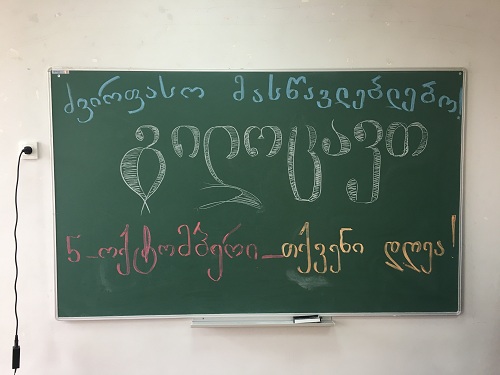 ძვირფასო მასწავლებლებო!
გილოცავთ
5_ოქტომბერი_თქვენი დღეა!